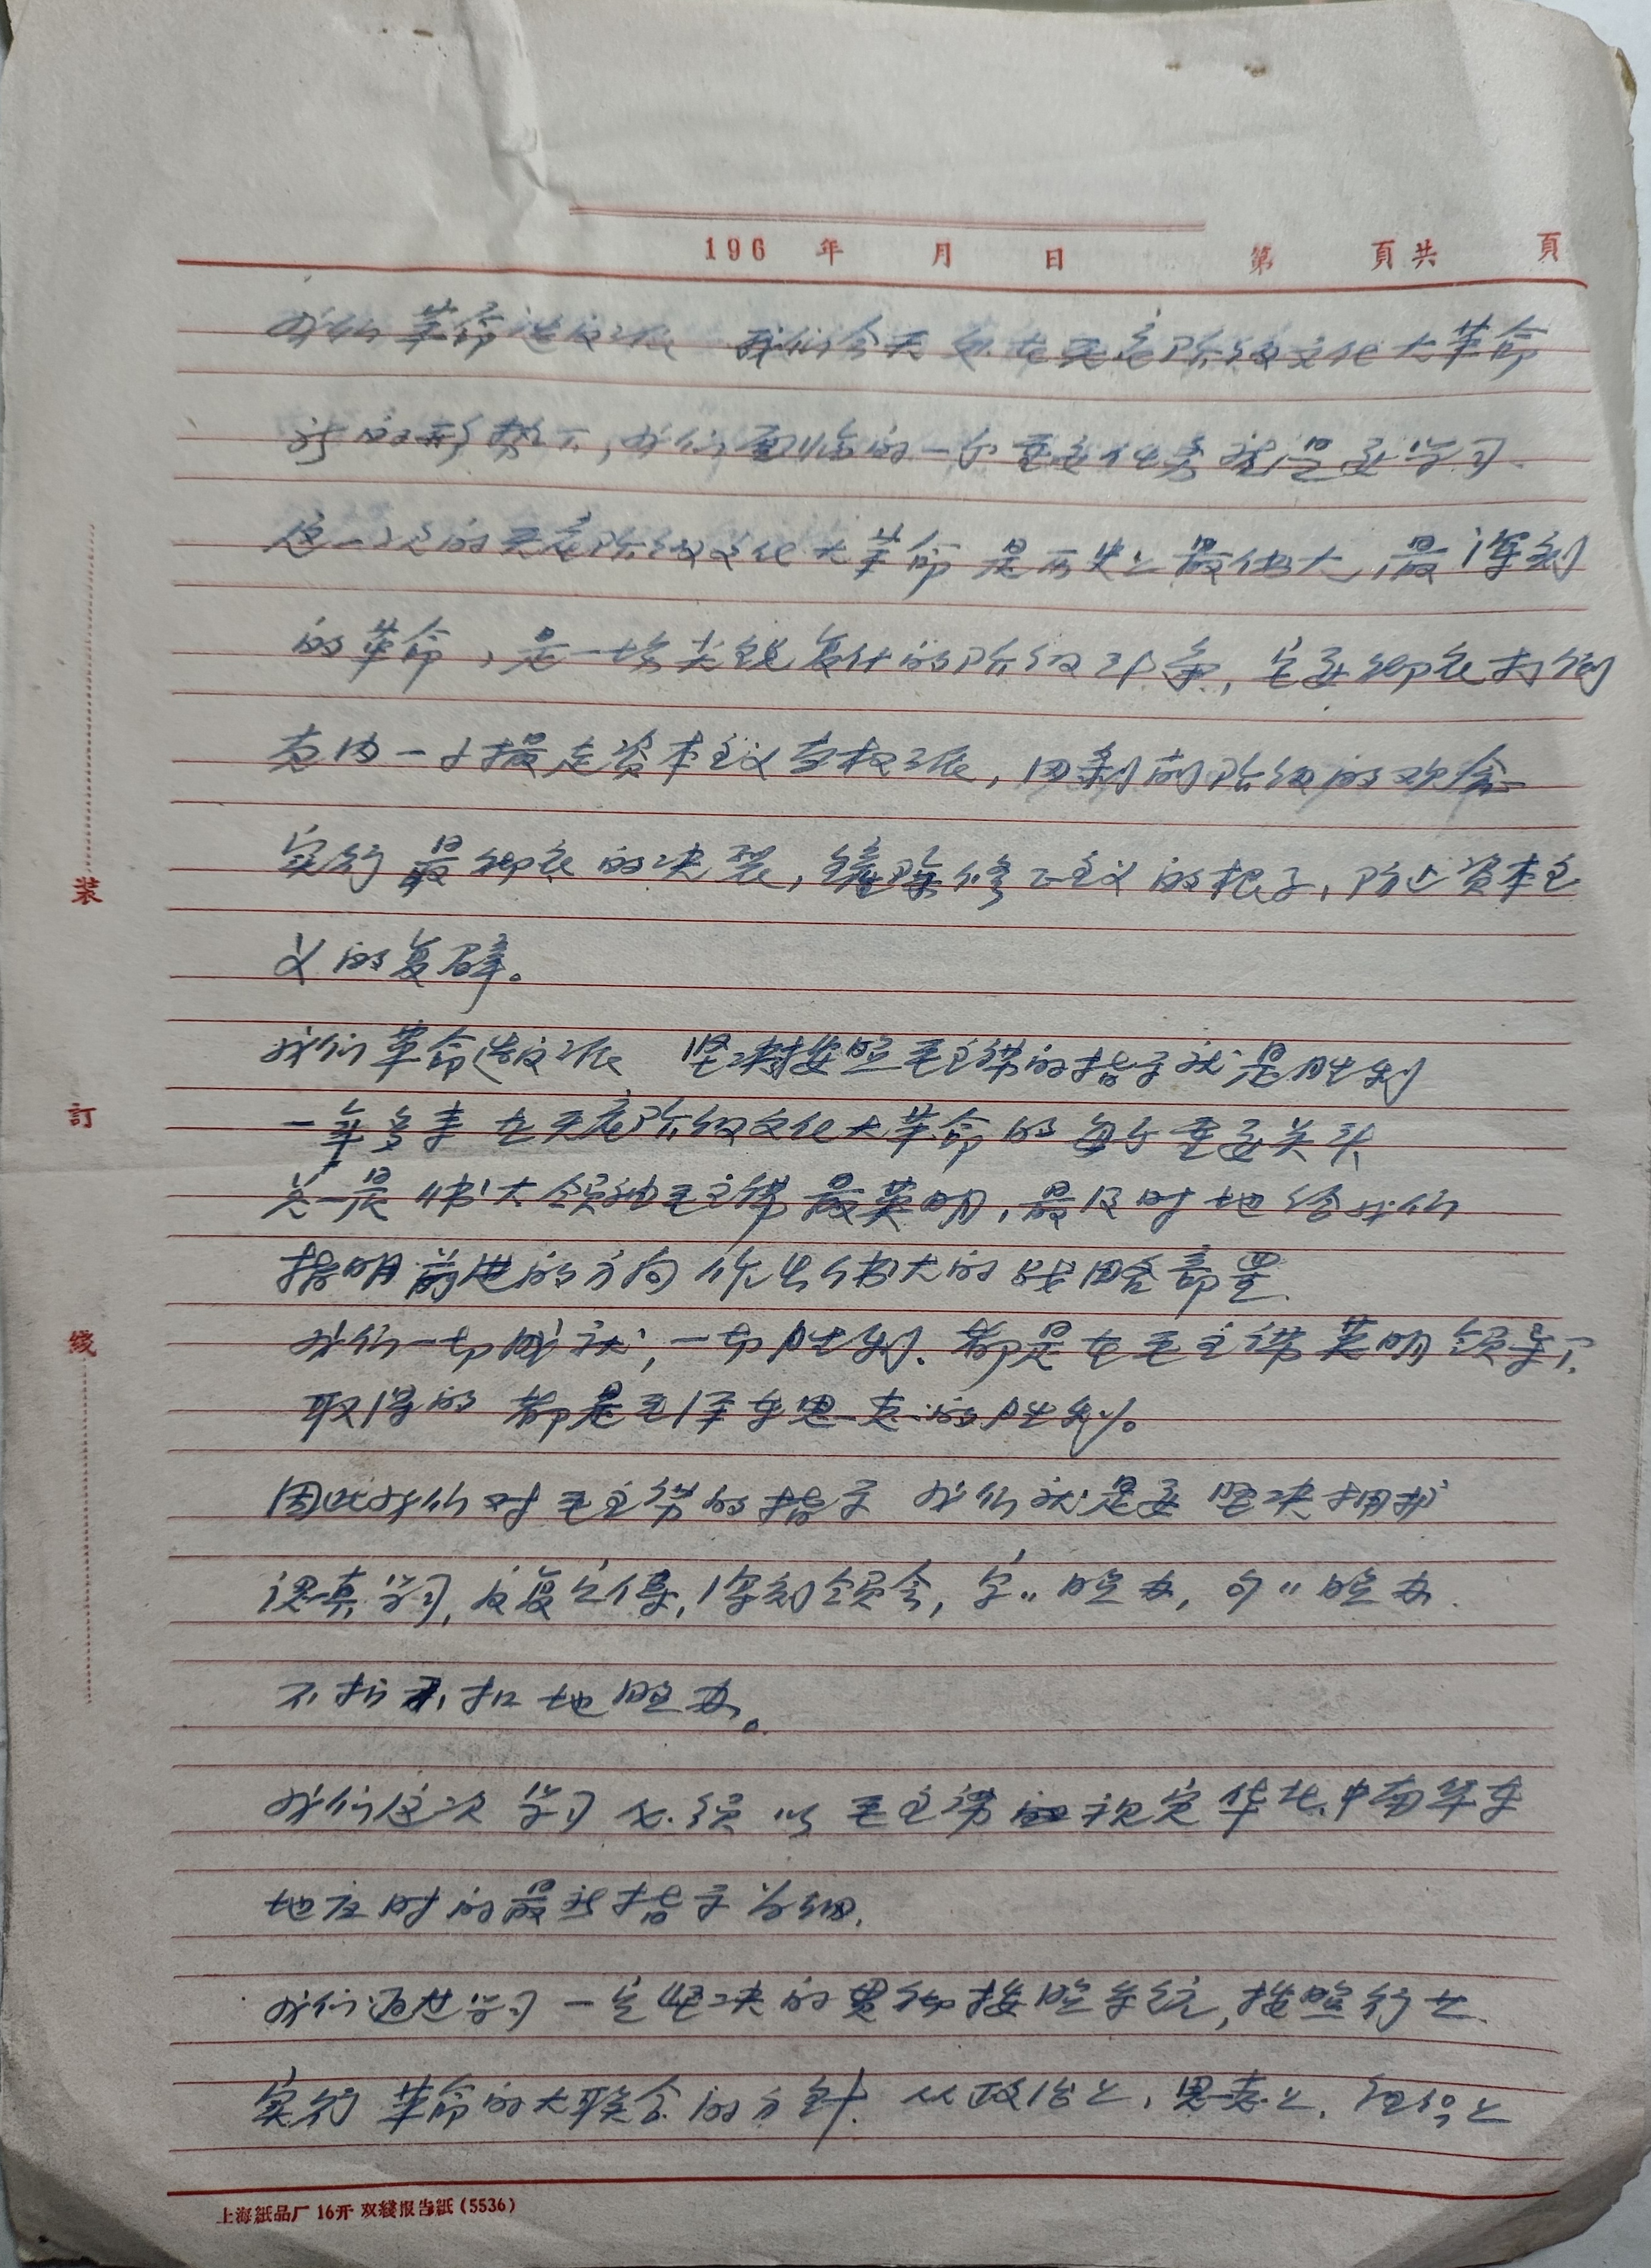 196 年 月 日 第 頁共 頁
我们革命造反派 我们今天处在无产阶级文化大革命
新的形势下，我们面临的一个重要任务就是要学习
这一次的无产阶级文化大革命是历史上最伟大，最深刻
的革命，是一场尖锐复什的阶级斗争，它要彻底打倒
党内一小撮走资本主义当权派，同剥削阶级的观念
实行最彻底的决裂，铲除修正主义的根子，防止资本主
义的复辟。
我们革命造反派 坚决按照毛主席的指示就是胜利
一年多来 在无产阶级文化大革命的每个重要关头
总是伟大领袖毛主席最英明，最及时地给我们
指明前进的方向作出伟大的战略部署.
我们一切成就，一切胜利.都是在毛主席英明领导下
取得的 都是毛泽东思想的胜利。
因此我们对毛主席的指示 我们就是要坚决拥护
认真学习，反复宣传，深刻领会，字〃照办，句〃照办.
不折不扣地照办。
我们这次学习必须以毛主席视察华北、中南华东
地区时的最新指示为纲.
我们通过学习一定坚决的贯彻按照系统，按照行业
实行革命的大联合的方针.从政治上，思想上，组织上
装
訂
线
上海紙品厂 16开 双綫报告紙（5536）